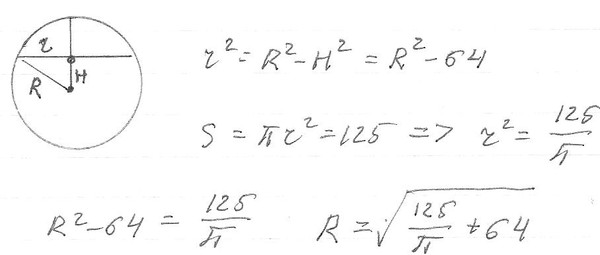 r
R
H
r² = R² - H² = R² - 64
S = πr² = 125 => r² = 125/π
R² - 64 = 125/π    R = √(125/π + 64)